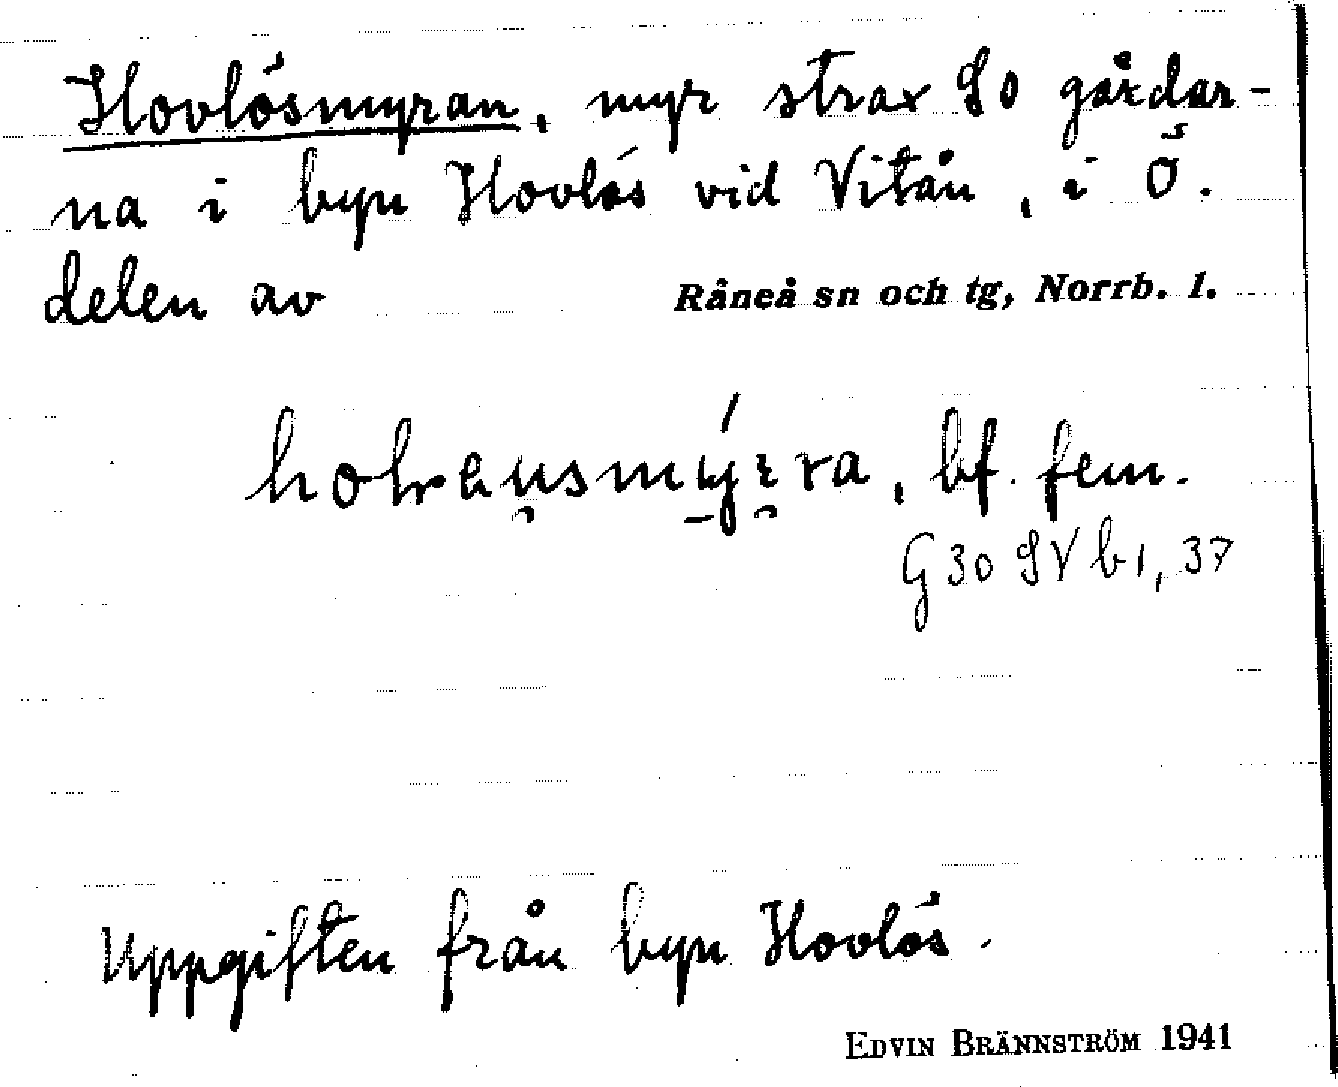 Hovlösmyran, myr strax SO gårdar-
na i byn Hovlös vid Vitån, i Ö.
delen av Råneå sn och tg, Norrb. l.
bf. fem.
G 30 SV b 1, 37
Uppgiften från byn Hovlös.
EDVIN BRÄNNSTRÖM 1941